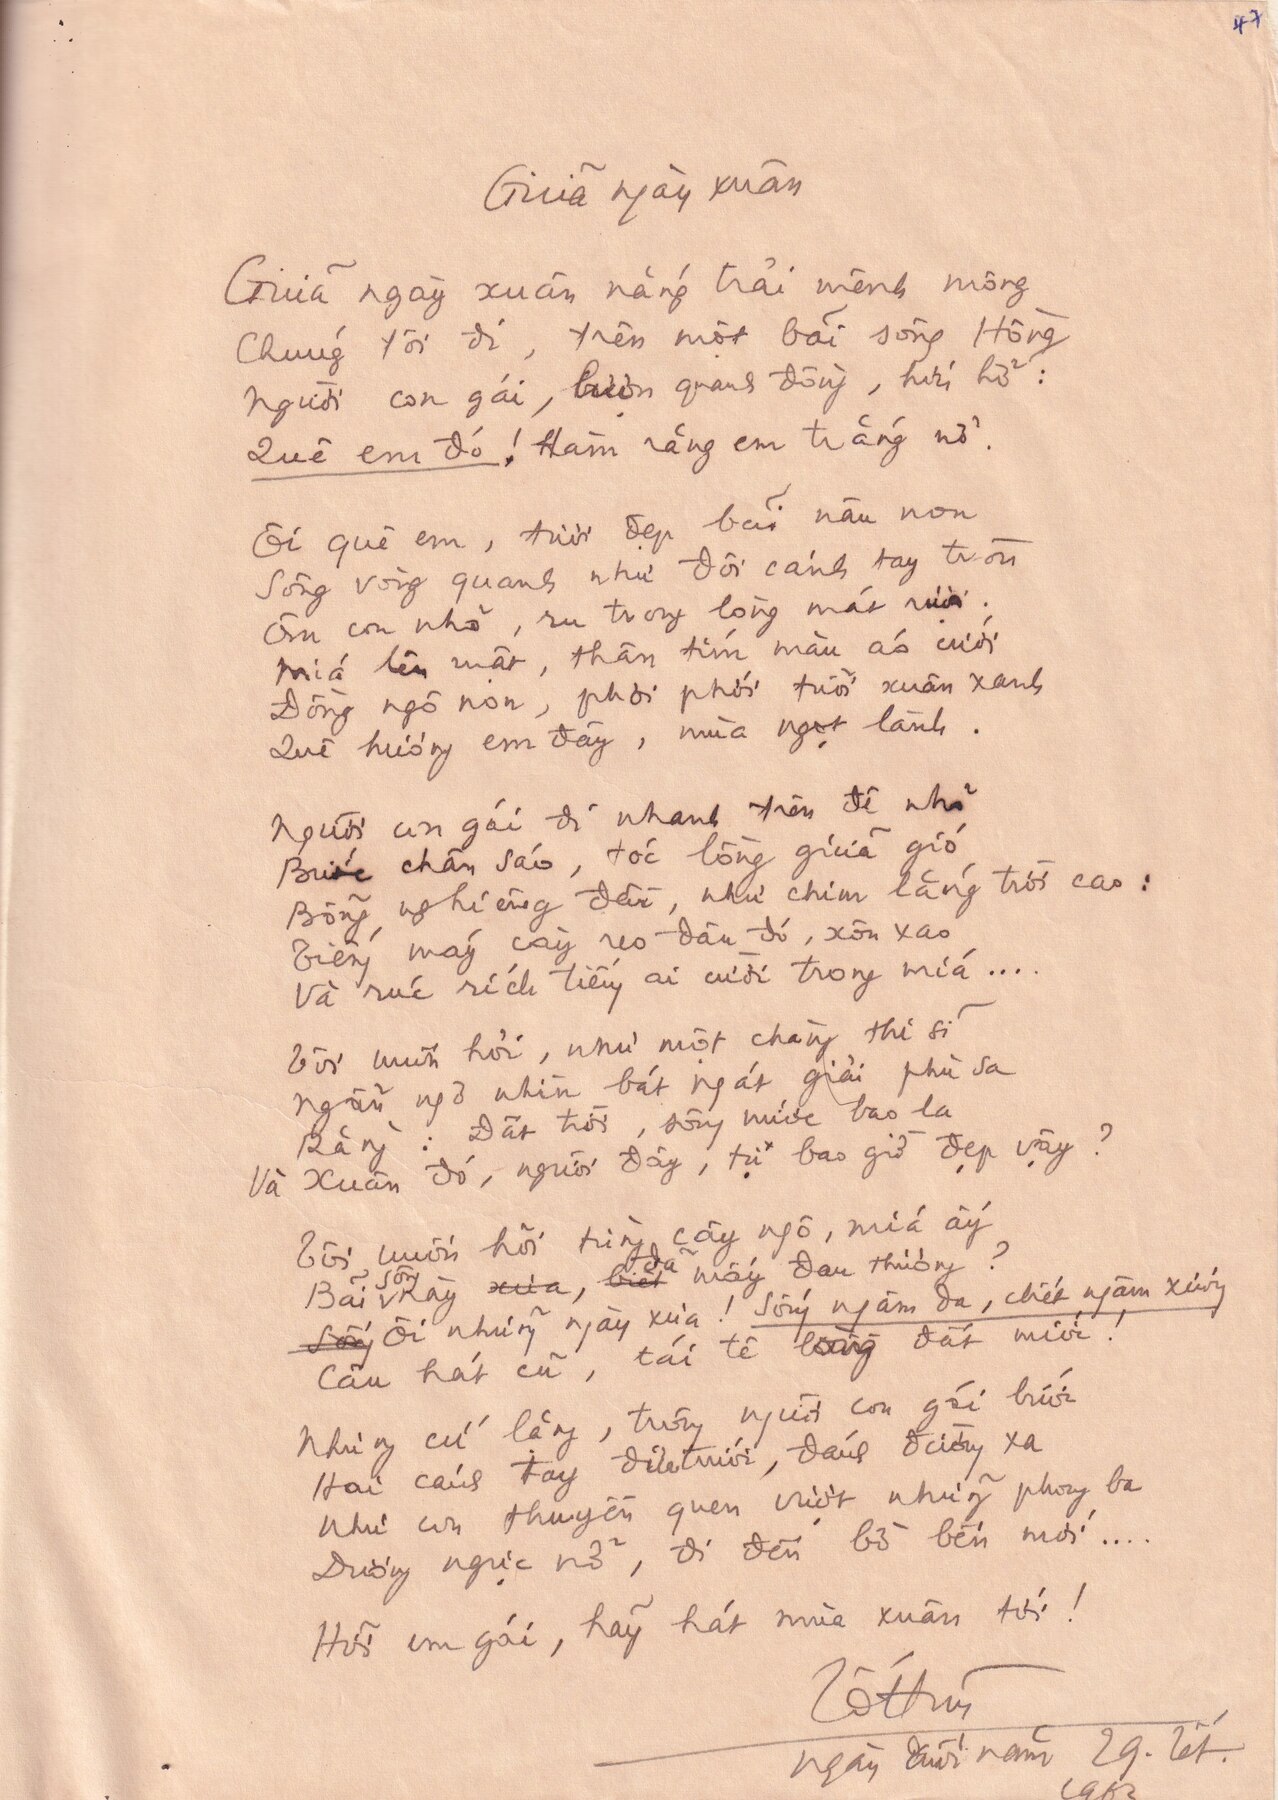 47
Giữa ngày xuân
Giữa ngày xuân nắng trải mênh mông
Chúng tôi đi, trên một bãi sông Hồng
Người con gái, lượn quanh đồng, hớn hở:
Quê em đó! Hàm răng em trắng nở.
Ôi quê em, tươi đẹp bãi nâu non
Sông vòng quanh như đôi cánh tay tròn
Ôm con nhỏ, ru trong lòng mát rượi.
Mía lên mật, thân tím màu áo cưới
Đồng ngô non, phơi phới tuổi xuân xanh
Quê hương em đây, mùa ngọt lành.
Người con gái đi nhanh trên đê nhỏ
Bước chân sáo, tóc lồng giữa gió
Bỗng nghiêng đầu, như chim lắng trời cao:
Tiếng máy cày reo đâu đó, xôn xao
Và rúc rích tiếng ai cười trong mía....
Tôi muốn hỏi, như một chàng thi sĩ
Ngẩn ngơ nhìn bát ngát giải phù sa
Rằng: Đất trời, sông nước bao la
Và Xuân đó, người đây, tự bao giờ đẹp vậy?
Tôi muốn hỏi từng cây ngô, mía ấy
Bãi sông này xưa, biết đã mấy đau thương?
Sống Ôi những ngày xưa! Sống ngâm da, chết ngâm xương
Câu hát cũ, tái tê lòng đất nước!
Nhưng cứ lặng, trông người con gái bước
Hai cánh tay trước, đánh đường xa
Như con thuyền quen vượt những phong ba
Dướng ngực nở, đi đến bờ bến mới....
Hỡi em gái, hãy hát mùa xuân tới!
Tố Hữu
ngày cuối năm 29. Tết.
1962